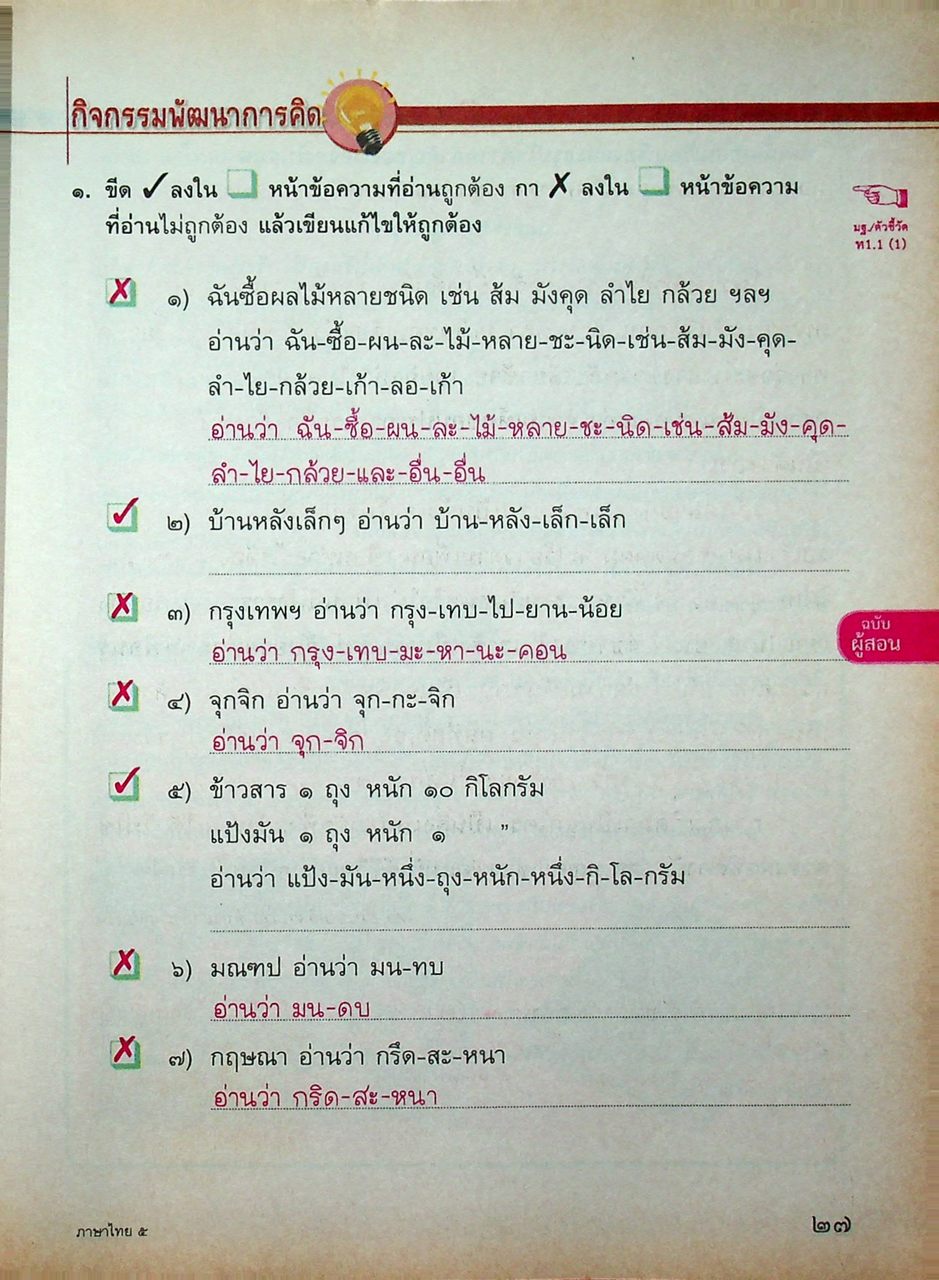 กิจกรรมพัฒนาการคิด
๑. ขีด ✓ ลงใน ☐ หน้าข้อความที่อ่านถูกต้อง กา ✗ ลงใน ☐ หน้าข้อความ
ที่อ่านไม่ถูกต้อง แล้วเขียนแก้ไขให้ถูกต้อง
มฐ./ตัวชี้วัด
ท1.1 (1)
✗ ๑) ฉันซื้อผลไม้หลายชนิด เช่น ส้ม มังคุด ลำไย กล้วย ฯลฯ
อ่านว่า ฉัน-ซื้อ-ผน-ละ-ไม้-หลาย-ชะ-นิด-เช่น-ส้ม-มัง-คุด-
ลำ-ไย-กล้วย-เก้า-ลอ-เก้า
อ่านว่า ฉัน-ซื้อ-ผน-ละ-ไม้-หลาย-ชะ-นิด-เช่น-ส้ม-มัง-คุด-
ลำ-ไย-กล้วย-และ-อื่น-อื่น
✓ ๒) บ้านหลังเล็กๆ อ่านว่า บ้าน-หลัง-เล็ก-เล็ก
✗ ๓) กรุงเทพฯ อ่านว่า กรุง-เทบ-ไป-ยาน-น้อย
อ่านว่า กรุง-เทบ-มะ-หา-นะ-คอน
ฉบับ
ผู้สอน
✗ ๔) จุกจิก อ่านว่า จุก-กะ-จิก
อ่านว่า จุก-จิก
✓ ๕) ข้าวสาร ๑ ถุง หนัก ๑๐ กิโลกรัม
แป้งมัน ๑ ถุง หนัก ๑ ”
อ่านว่า แป้ง-มัน-หนึ่ง-ถุง-หนัก-หนึ่ง-กิ-โล-กรัม
✗ ๖) มณฑป อ่านว่า มน-ทบ
อ่านว่า มน-ดบ
✗ ๗) กฤษณา อ่านว่า กรึด-สะ-หนา
อ่านว่า กริด-สะ-หนา
ภาษาไทย ๕
๒๗